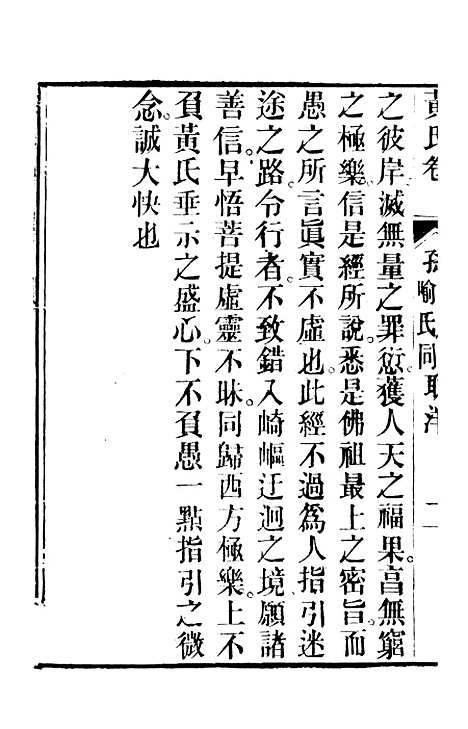 黃氏卷
孫喻氏同耿洋
二
之彼岸滅無量之罪愆獲人天之福果亯無窮
之極樂信是經所說悉是佛祖最上之密旨而
愚之所言眞實不虛也此經不過爲人指引迷
途之路令行者不致錯入崎嶇迂迴之境願諸
善信早悟菩提虛靈不昧同歸西方極樂上不
負黃氏垂示之盛心下不負愚一點指引之微
念誠大快也